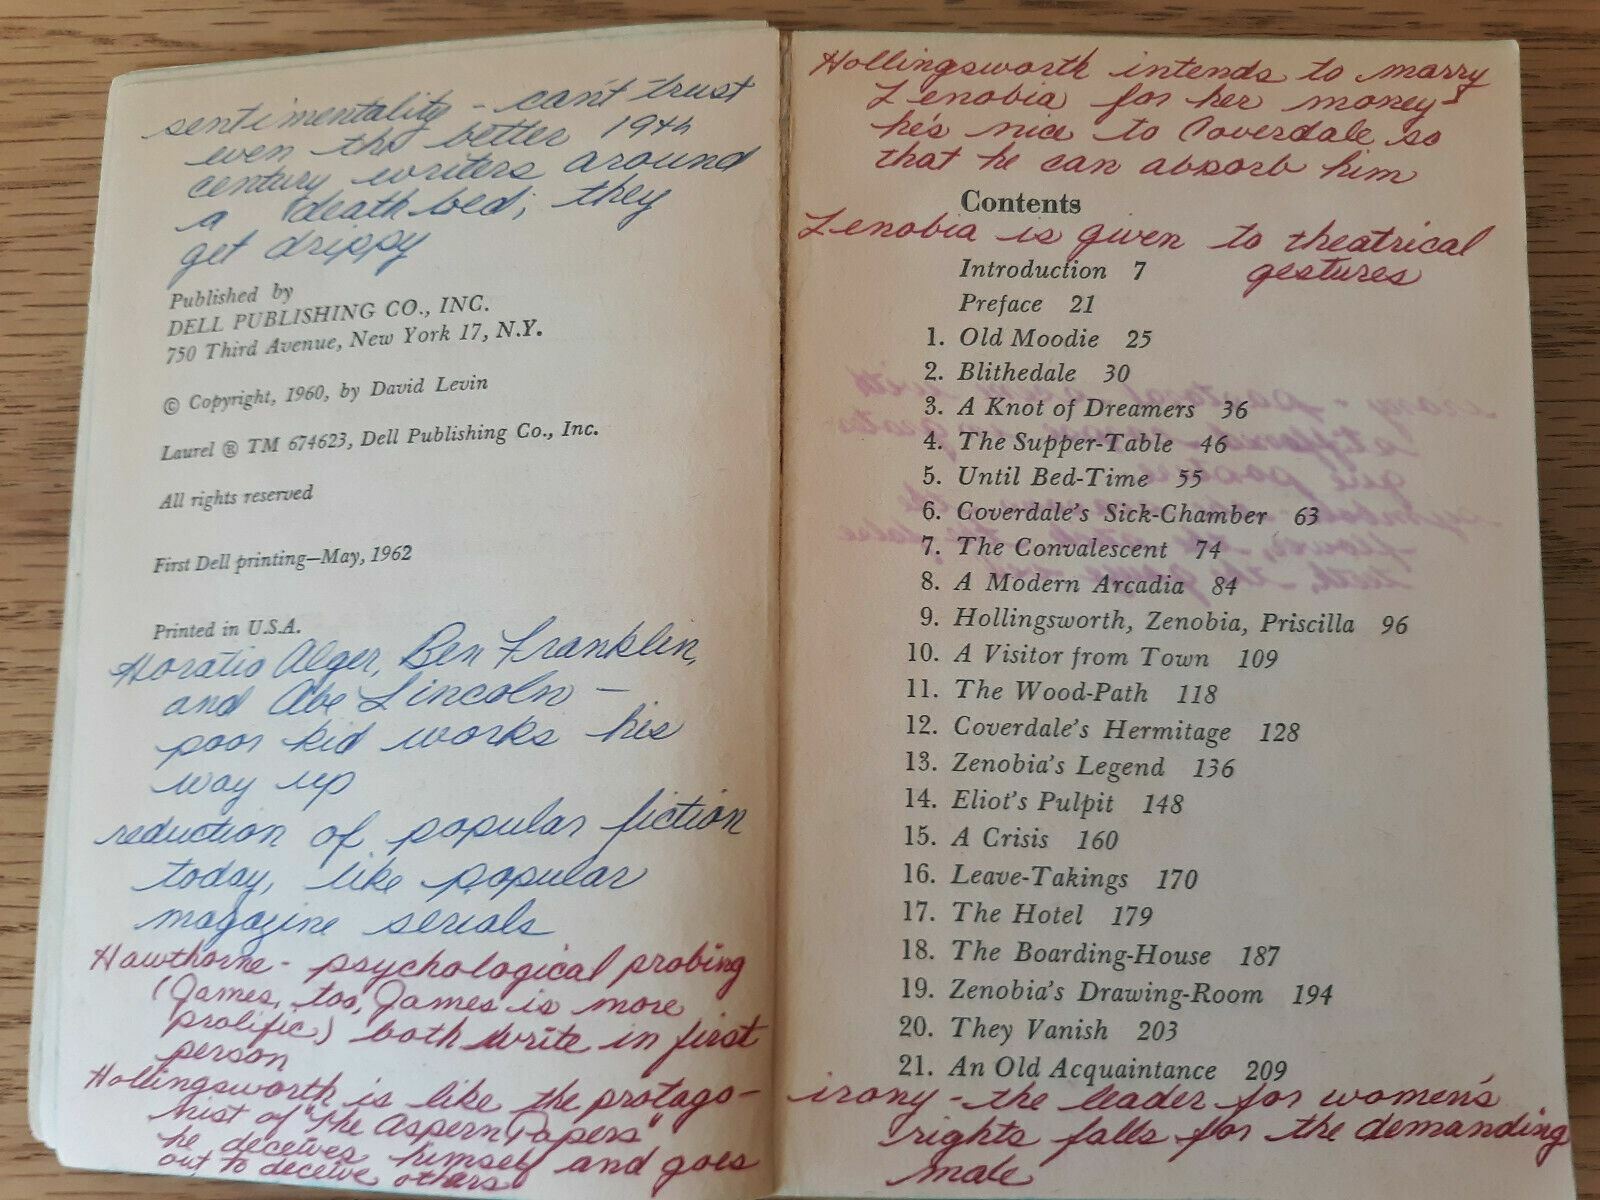 sentimentality - can't trust
even the better 19th
century writers around
a death bed; they
get drippy
Published by
DELL PUBLISHING CO., INC.
750 Third Avenue, New York 17, N.Y.
© Copyright, 1960, by David Levin
Laurel ® TM 674623, Dell Publishing Co., Inc.
All rights reserved
First Dell printing—May, 1962
Printed in U.S.A.
Horatio Alger, Ben Franklin,
and Abe Lincoln -
poor kid works his
way up
reduction of popular fiction
today, like popular
magazine serials
Hawthorne - psychological probing
(James, too, James is more
prolific) both write in first
person
Hollingsworth is like the protago-
nist of "The Aspern Papers"
he deceives himself and goes
out to deceive others
Hollingsworth intends to marry
Zenobia for her money -
he's nice to Coverdale so
that he can absorb him
Contents
Zenobia is given to theatrical
gestures
Introduction 7
Preface 21
1. Old Moodie 25
2. Blithedale 30
3. A Knot of Dreamers 36
4. The Supper-Table 46
5. Until Bed-Time 55
6. Coverdale's Sick-Chamber 63
7. The Convalescent 74
8. A Modern Arcadia 84
9. Hollingsworth, Zenobia, Priscilla 96
10. A Visitor from Town 109
11. The Wood-Path 118
12. Coverdale's Hermitage 128
13. Zenobia's Legend 136
14. Eliot's Pulpit 148
15. A Crisis 160
16. Leave-Takings 170
17. The Hotel 179
18. The Boarding-House 187
19. Zenobia's Drawing-Room 194
20. They Vanish 203
21. An Old Acquaintance 209
irony - the leader for women's
rights falls for the demanding
male